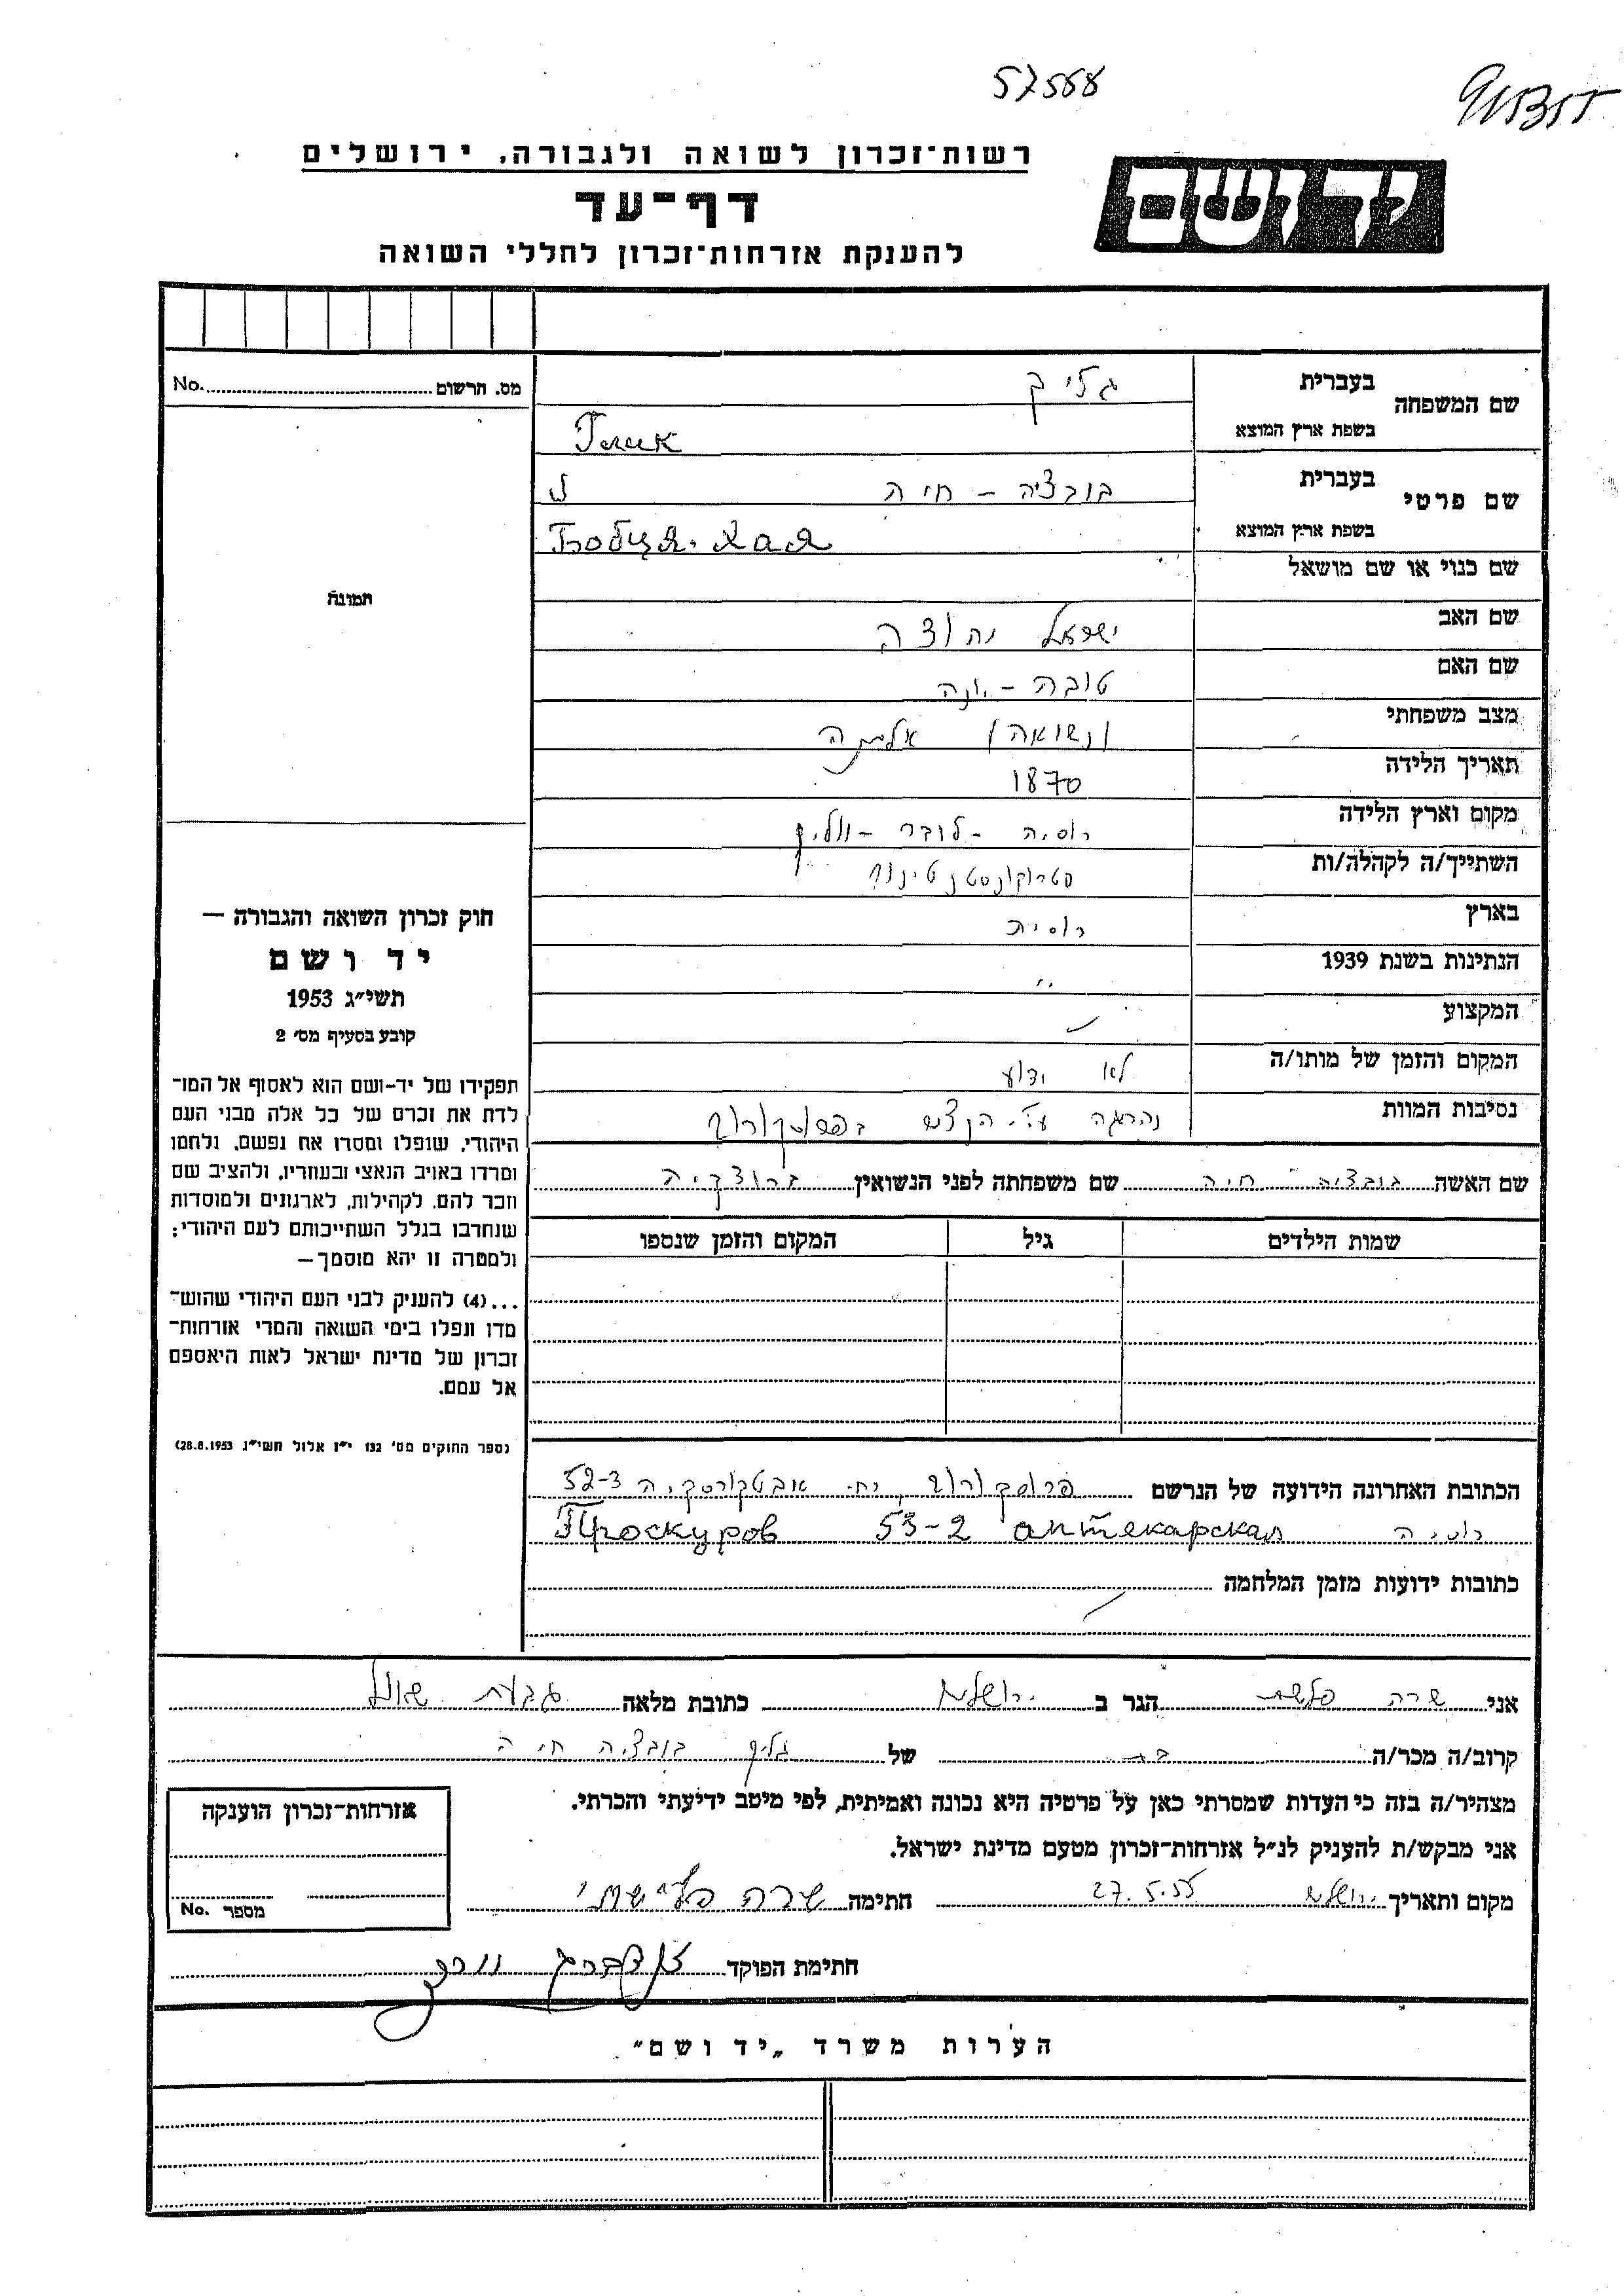 57568
רשות־זכרון לשואה ולגבורה, ירושלים
יד ושם
דף־עד
להענקת אזרחות־זכרון לחללי השואה
מס. הרשום No.
תמונה
שם המשפחה
בעברית
גליק
בשפת ארץ המוצא
Глик
שם פרטי
בעברית
בובציה - חיה
בשפת ארץ המוצא
Бобця-Хая
שם כנוי או שם מושאל
שם האב
ישראל יהודה
שם האם
טובה - יונה
מצב משפחתי
(נשואה) אלמנה
תאריך הלידה
1870
מקום וארץ הלידה
רוסיה - לובר - ווהלין
השתייך/ה לקהלה/ות
בארץ
רוסיה
הנתינות בשנת 1939
"
המקצוע
המקום והזמן של מותו/ה
לא ידוע
נסיבות המוות
נהרגה ע"י הנצים בפרוסקורוב
שם האשה בובציה חיה שם משפחתה לפני הנשואין
שמות הילדים
גיל
המקום והזמן שנספו
הכתובת האחרונה הידועה של הנרשם פרוסקורוב, רח. אבטקרסקיה 52-3
רוסיה
Проскуров 53-2 аптекарская
כתובות ידועות מזמן המלחמה
חוק זכרון השואה והגבורה —
יד ושם
תשי״ג 1953
קובע בסעיף מס׳ 2
תפקידו של יד-ושם הוא לאסוף אל המו־
לדת את זכרם של כל אלה מבני העם
היהודי, שנפלו ומסרו את נפשם, נלחמו
ומרדו באויב הנאצי ובעוזריו, ולהציב שם
וזכר להם, לקהילות, לארגונים ולמוסדות
שנחרבו בגלל השתייכותם לעם היהודי;
ולמטרה זו יהא מוסמך—
...(4) להעניק לבני העם היהודי שהוש־
מדו ונפלו בימי השואה והמרי אזרחות־
זכרון של מדינת ישראל לאות היאספם
אל עמם.
(ספר החוקים מס׳ 132 י״ז אלול תשי״ג 28.8.1953)
אני שרה הגר ב ירושלים כתובת מלאה גבעת שאול
קרוב/ה מכר/ה בת של גליק בובציה חיה
מצהיר/ה בזה כי העדות שמסרתי כאן על פרטיה היא נכונה ואמיתית, לפי מיטב ידיעתי והכרתי.
אני מבקש/ת להעניק לנ״ל אזרחות־זכרון מטעם מדינת ישראל.
מקום ותאריך ירושלים 27.5.55 חתימה שרה פלישתי
חתימת הפוקד
אזרחות־זכרון הוענקה
מספר No.
הערות משרד „יד ושם״